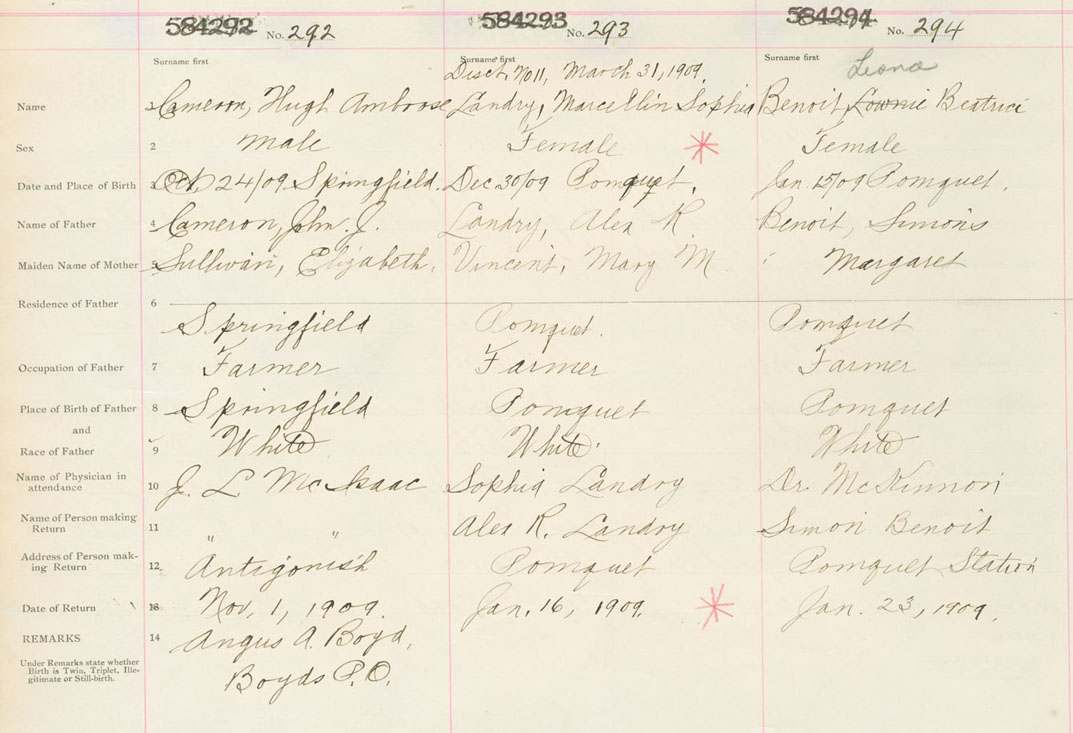 584292 No. 292
584293 No. 293
584294 No. 294
Surname first Surname first Surname first
Disct No 11, March 31, 1909. Leona
Name 1 Cameron, Hugh Ambrose Landry, Marcellin Sophia Benoit Lownie Beatrice
Sex 2 male Female Female
Date and Place of Birth 3 Oct 24/09 Springfield. Dec 30/09 Pomquet. Jan 15/09 Pomquet.
Name of Father 4 Cameron, John. J. Landry, Alex R. Benoit, Simons
Maiden Name of Mother 5 Sullivan, Elizabeth. Vincent, Mary M Margaret
Residence of Father 6 Springfield Pomquet. Pomquet
Occupation of Father 7 Farmer Farmer Farmer
Place of Birth of Father 8 Springfield Pomquet Pomquet
and
Race of Father 9 White White. White
Name of Physician in attendance 10 J. L McIsaac Sophia Landry Dr. McKinnon
Name of Person making Return 11 " " Alex R. Landry Simon Benoit
Address of Person making Return 12 Antigonish Pomquet Pomquet Station
Date of Return 13 Nov, 1, 1909. Jan. 16, 1909. Jan. 23, 1909.
REMARKS 14 Angus A. Boyd,
Under Remarks state whether Birth is Twin, Triplet, Illegitimate or Still-birth.
Boyds P.O.